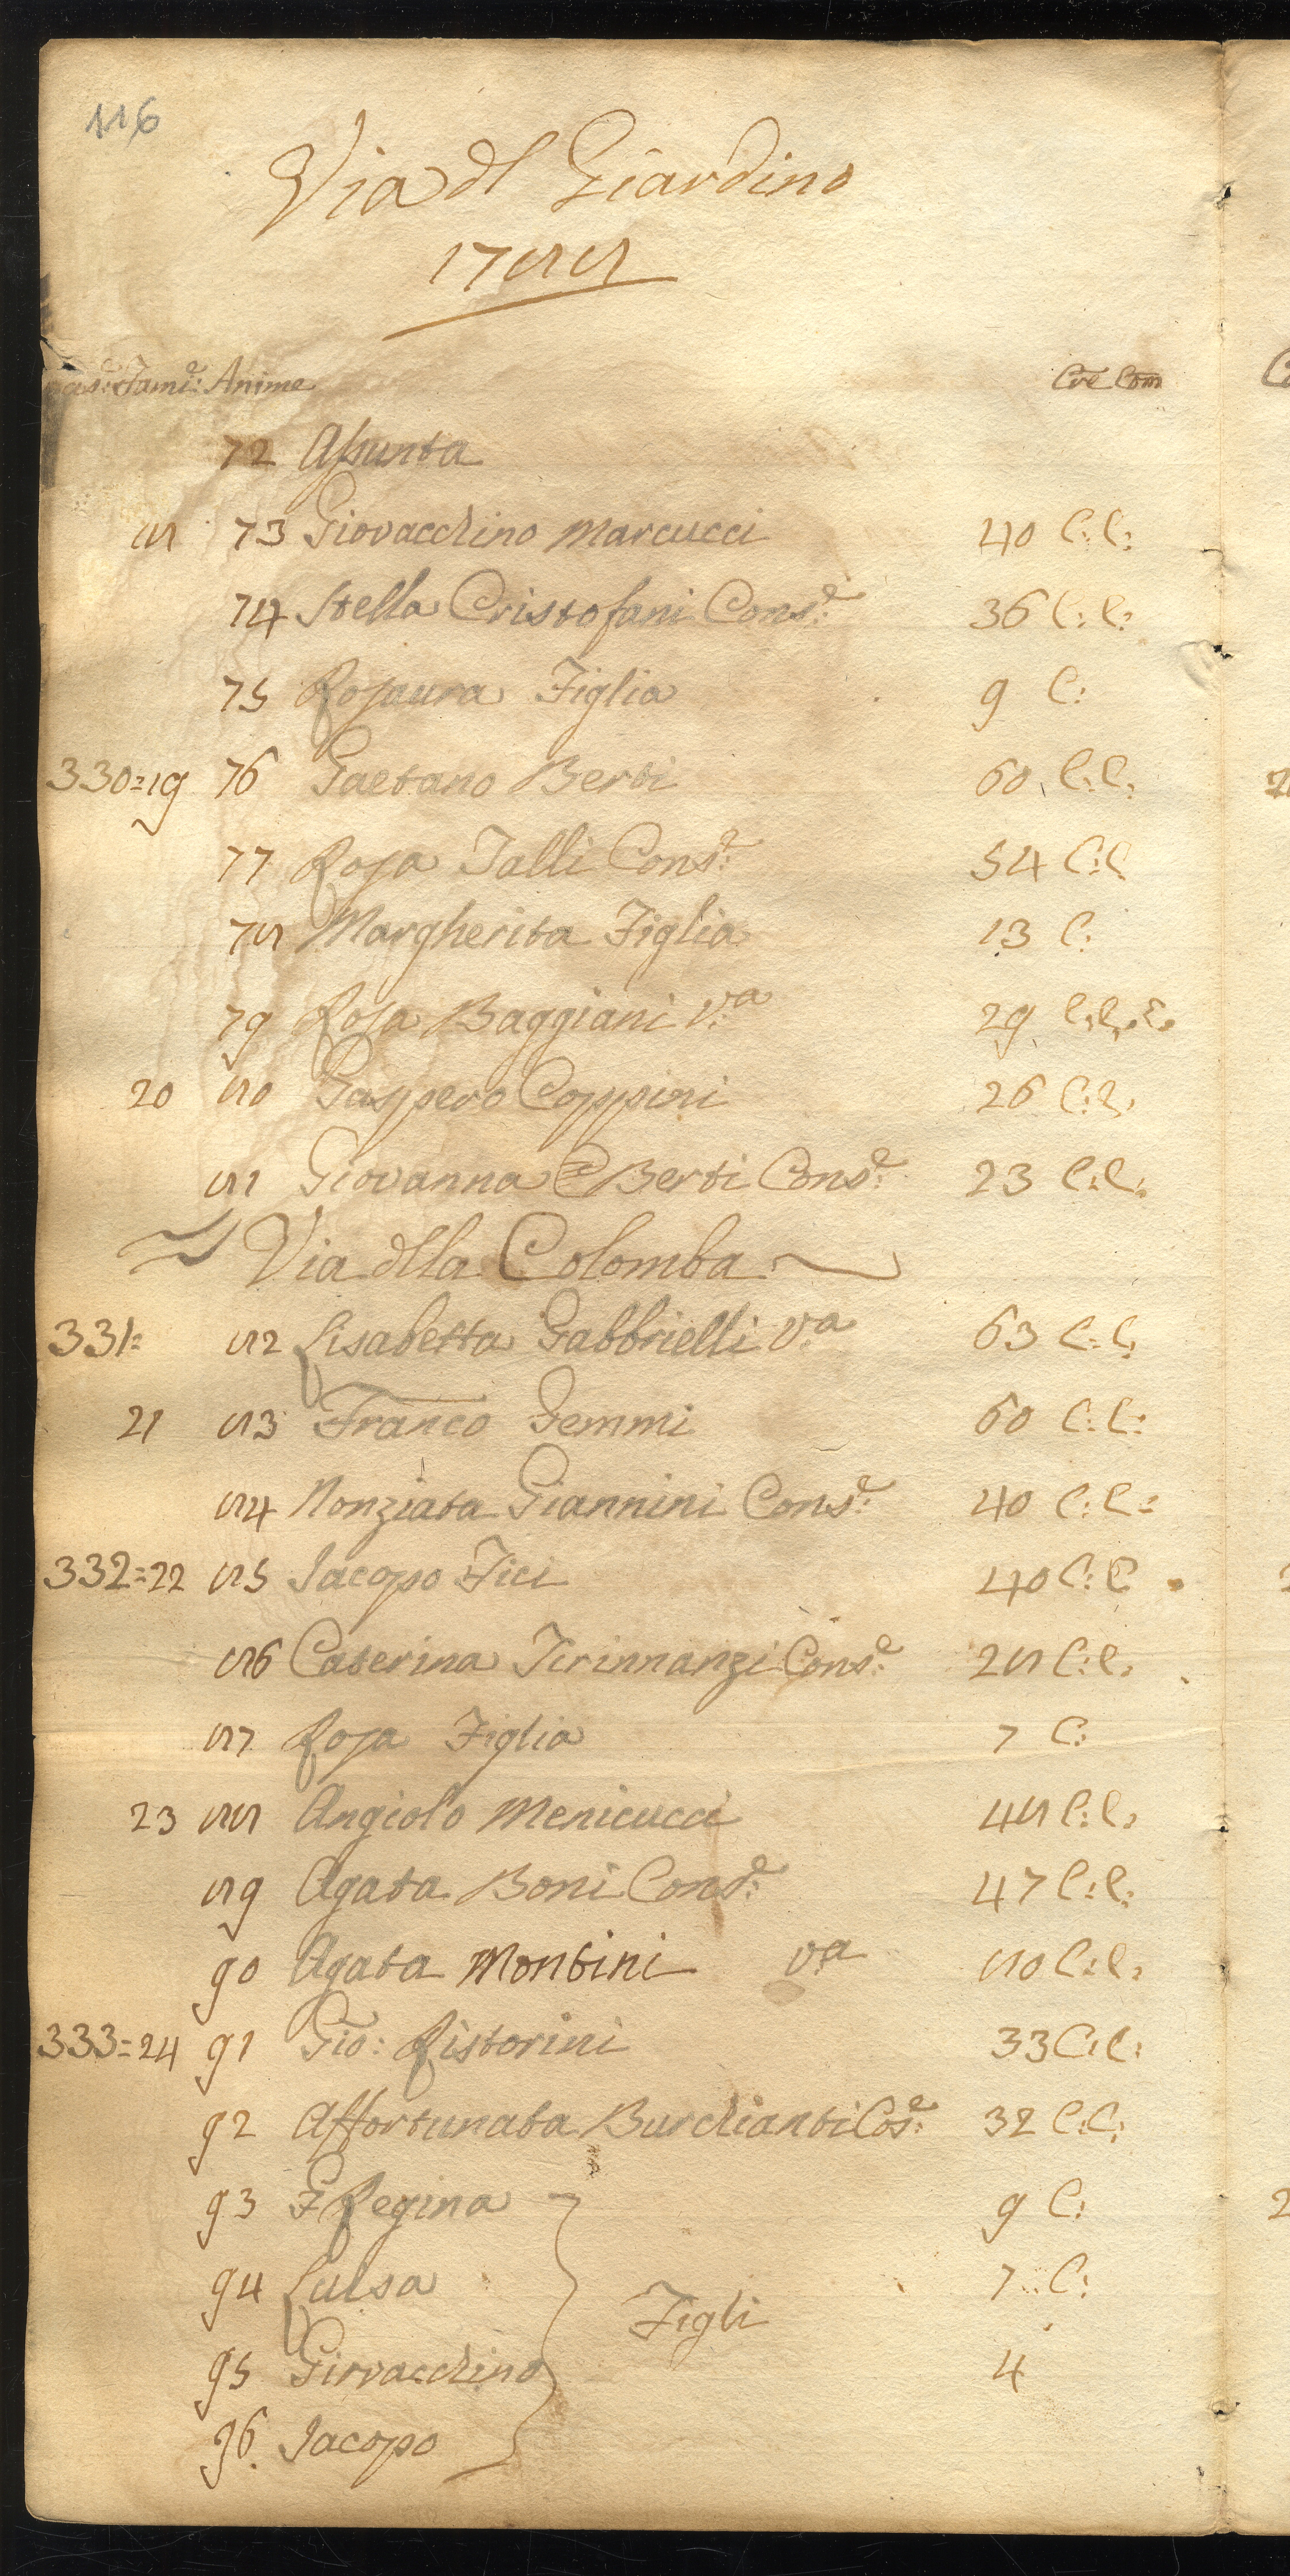 116
Via dl Giardino
1788
Cas:e Fami:e Anime Cre Com
72 Assunta
18 73 Giovacchino Marcucci 40 C: C:
74 Stella Cristofani Cons:e 36 C: C:
75 Rosaura Figlia 9 C:
330=19 76 Gaetano Berti 60 C: C:
77 Rosa Talli Cons:e 54 C: C
78 Margherita Figlia 13 C:
79 Rosa Baggiani V:a 29 C: C:
20 80 Gaspero Coppini 26 C: C:
81 Giovanna Berti Cons:e 23 C: C:
Via dlla Colomba
331= 82 Lisabetta Gabbrielli V:a 63 C: C:
21 83 Franco Gemmi 60 C: C:
84 Nonziata Giannini Cons:e 40 C: C:
332=22 85 Jacopo Fici 40 C: C
86 Caterina Tirinnanzi Cons:e 28 C: C:
87 Rosa Figlia 7 C:
23 88 Angiolo Menicucci 48 C: C:
89 Agata Boni Cons:e 47 C: C:
90 Agata Montini V:a 80 C: C:
333=24 91 Gio: Ristorini 33 C: C:
92 Affortunata Burchianti Cos:e 32 C: C:
93 Regina 9 C:
94 Luisa 7 C:
Figli
95 Giovacchino 4
96 Jacopo